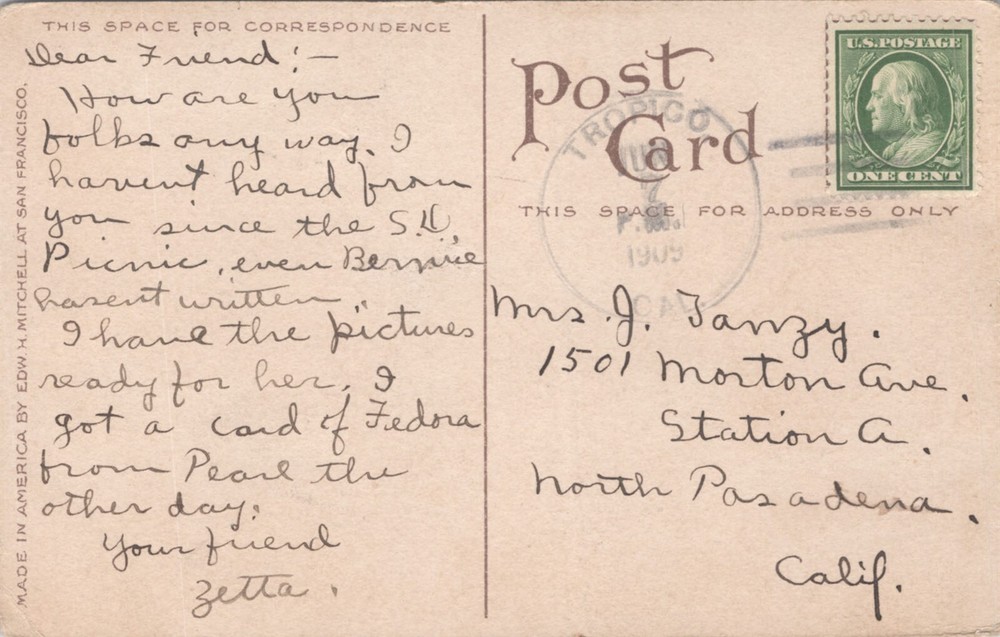 THIS SPACE FOR CORRESPONDENCE
Dear Friend:—
How are you
folks any way. I
havent heard from
you since the S.D.
Picnic, even Bernice
hasent written.
I have the pictures
ready for her. I
got a card of Fedora
from Pearl the
other day.
Your friend
Zetta.
MADE IN AMERICA BY EDW. H. MITCHELL AT SAN FRANCISCO.
Post
Card
THIS SPACE FOR ADDRESS ONLY
TROPICO
7
1909
CAL.
U.S. POSTAGE
ONE CENT
Mrs. J. Tanzy.
1501 Morton Ave.
Station A.
North Pasadena.
Calif.